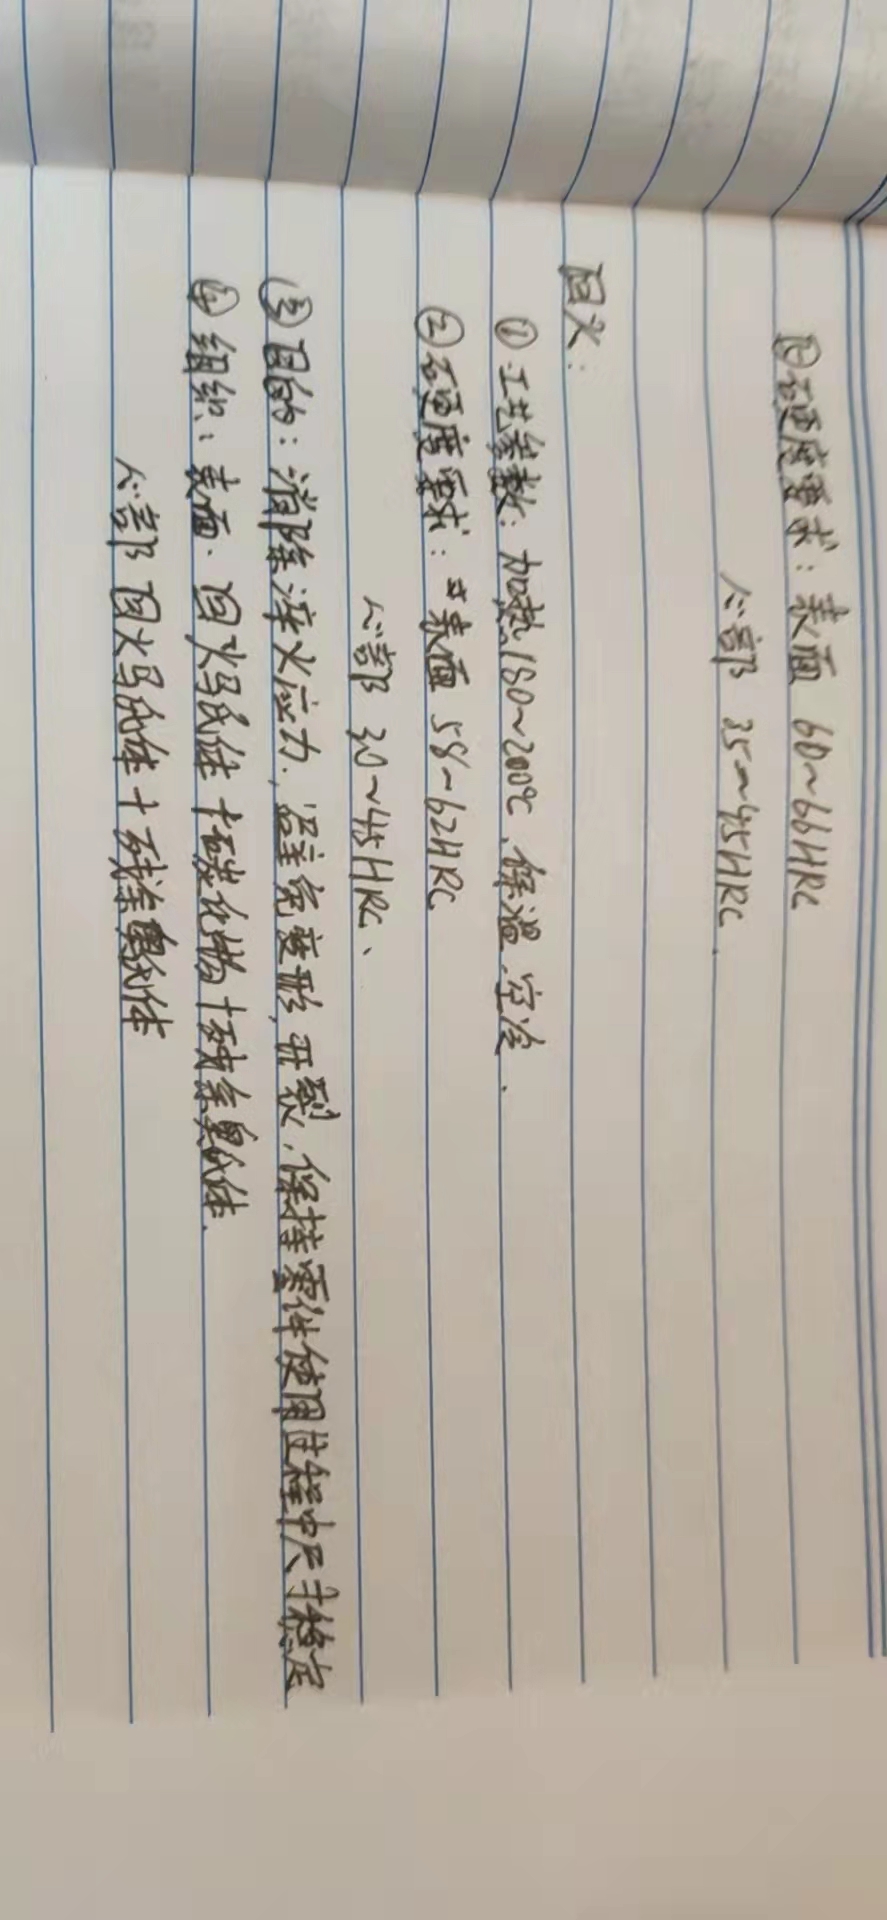 ④硬度要求:表面 60~66HRC
心部 35~45HRC.
回火:
①工艺参数:加热180~200℃、保温、空冷.
②硬度要求:表面 58~62HRC
心部 30~45HRC、
③目的:消除淬火应力,避免变形,开裂,保持零件使用过程中尺寸稳定
④组织:表面.回火马氏体+碳化物+残余奥氏体.
心部 回火马氏体+残余奥氏体